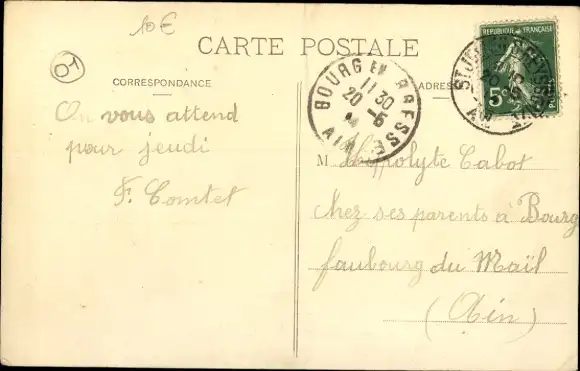 10€
CARTE POSTALE
OT
CORRESPONDANCE
ADRES
On vous attend
pour jeudi
F. Comtet
BOURG EN BRESSE
11 30
20 -5
AIN
RÉPUBLIQUE FRANÇAISE
5
M. Hippolyte Cabot
chez ses parents à Bourg
faubourg du Mail
(Ain)